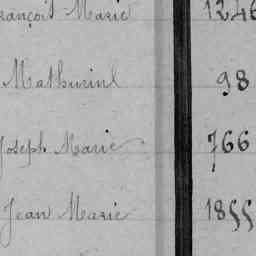 rançois Marie 1246
Mathurin 98
Joseph Marie 766
Jean Marie 1855